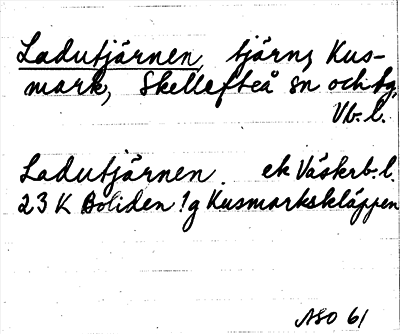 Ladutjärnen, tjärn, Kus-
mark, Skellefteå sn och tg,
Vb. l.
Ladutjärnen. ek Västerb. l.
23 K Boliden 1g Kusmarkskläppen
ASO 61